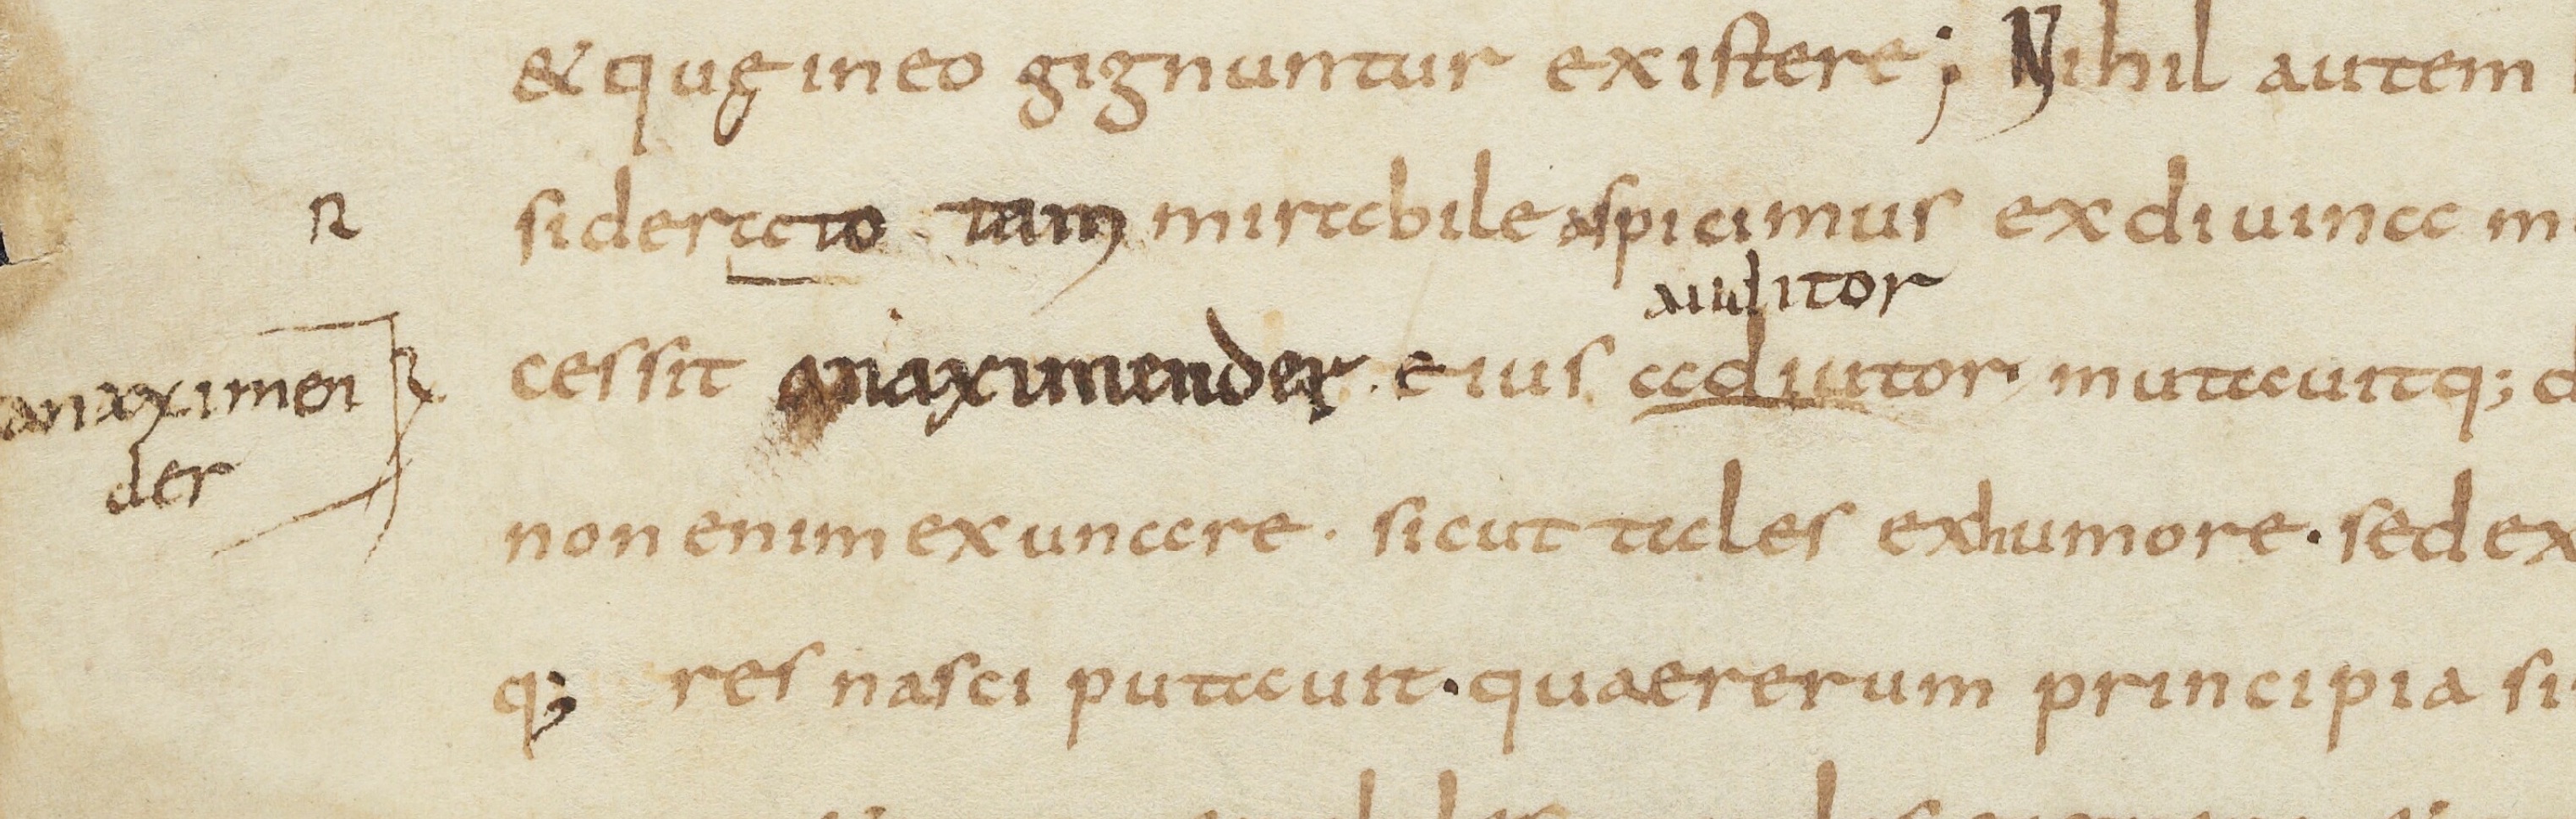 & quę in eo gignuntur existere; Nihil autem
R
sidera to tam mirabile aspicimus ex diuina
auditor
anaximen
der
R
cessit anaximender. eius adiutor mutauitq;
non enim ex una re. sicut tales ex humore. sed ex
q; res nasci putauit. quae rerum principia